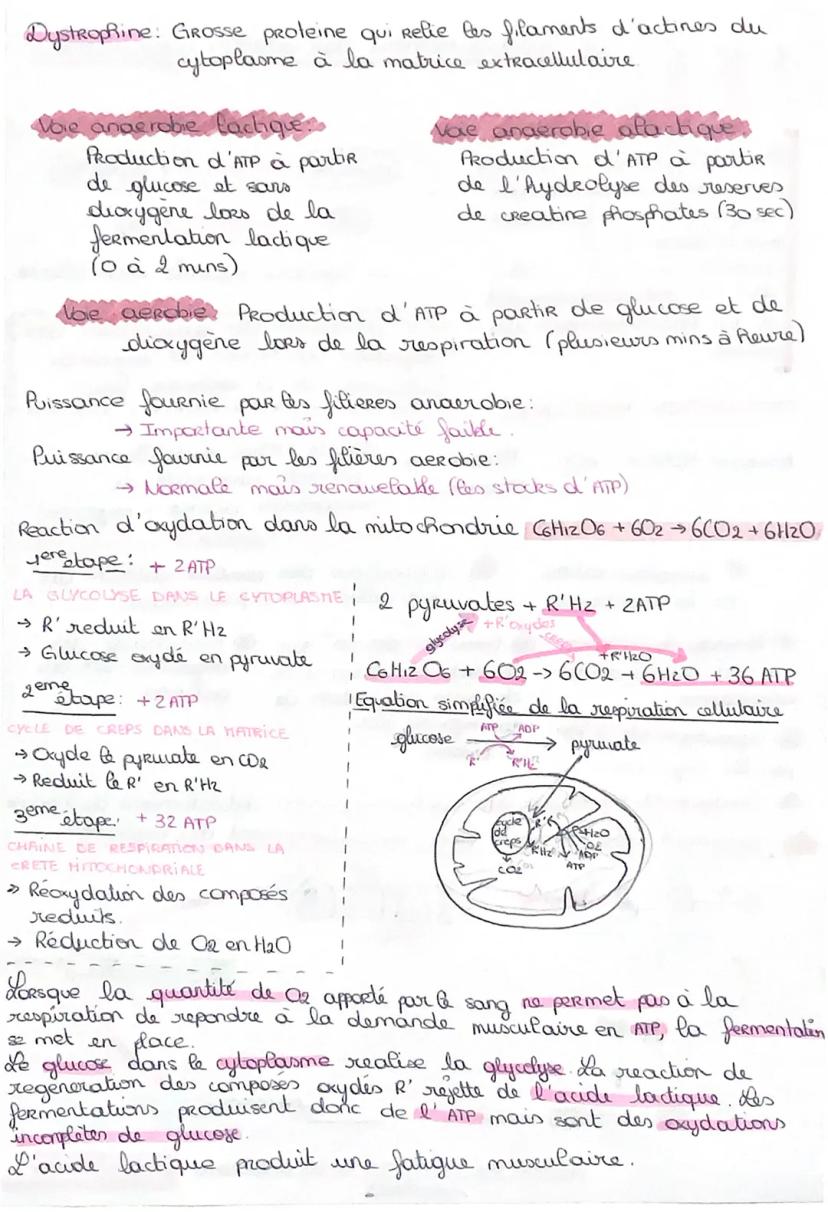 Dystrophine: Grosse proteine qui relie les filaments d'actines du
cytoplasme à la matrice extracellulaire.
Voie anaerobie lactique:
Production d'ATP à partir
de glucose et sans
dioxygène lors de la
fermentation lactique
(0 à 2 mins)
Voie anaerobie alactique:
Production d'ATP à partir
de l'hydrolyse des reserves
de creatine phosphates (30 sec)
Voie aerobie: Production d'ATP à partir de glucose et de
dioxygène lors de la respiration (plusieurs mins à heure)
Puissance fournie par les filieres anaerobie:
→ Importante mais capacité faible.
Puissance fournie par les filières aerobie:
→ Normale mais renouvelable (les stocks d'ATP)
Reaction d'oxydation dans la mitochondrie C6H12O6 + 6O2 → 6CO2 + 6H2O
1ere étape: + 2 ATP
LA GLYCOLYSE DANS LE CYTOPLASME
→ R' reduit en R'H2
→ Glucose oxydé en pyruvate
2eme étape: + 2 ATP
CYCLE DE CREPS DANS LA MATRICE
→ Oxyde le pyruvate en CO2
→ Reduit le R' en R'H2
3eme étape: + 32 ATP
CHAINE DE RESPIRATION DANS LA
CRETE MITOCHONDRIALE
→ Réoxydation des composés
reduits.
→ Réduction de O2 en H2O
2 pyruvates + R'H2 + 2ATP
glycolyse
+R'oxydes
+R'H2O
C6H12O6 + 6O2 -> 6CO2 + 6H2O + 36 ATP
Equation simplifiée de la respiration cellulaire
ATP ADP
glucose → pyruvate
R' R'H2
cycle
de
creps
R'
R'H2
H2O
O2
ADP
ATP
CO2
Lorsque la quantité de O2 apporté par le sang ne permet pas à la
respiration de repondre à la demande musculaire en ATP, la fermentation
se met en place.
Le glucose dans le cytoplasme realise la glycolyse. La reaction de
regeneration des composés oxydés R' rejette de l'acide lactique. Les
fermentations produisent donc de l'ATP mais sont des oxydations
incomplètes de glucose.
L'acide lactique produit une fatigue musculaire.